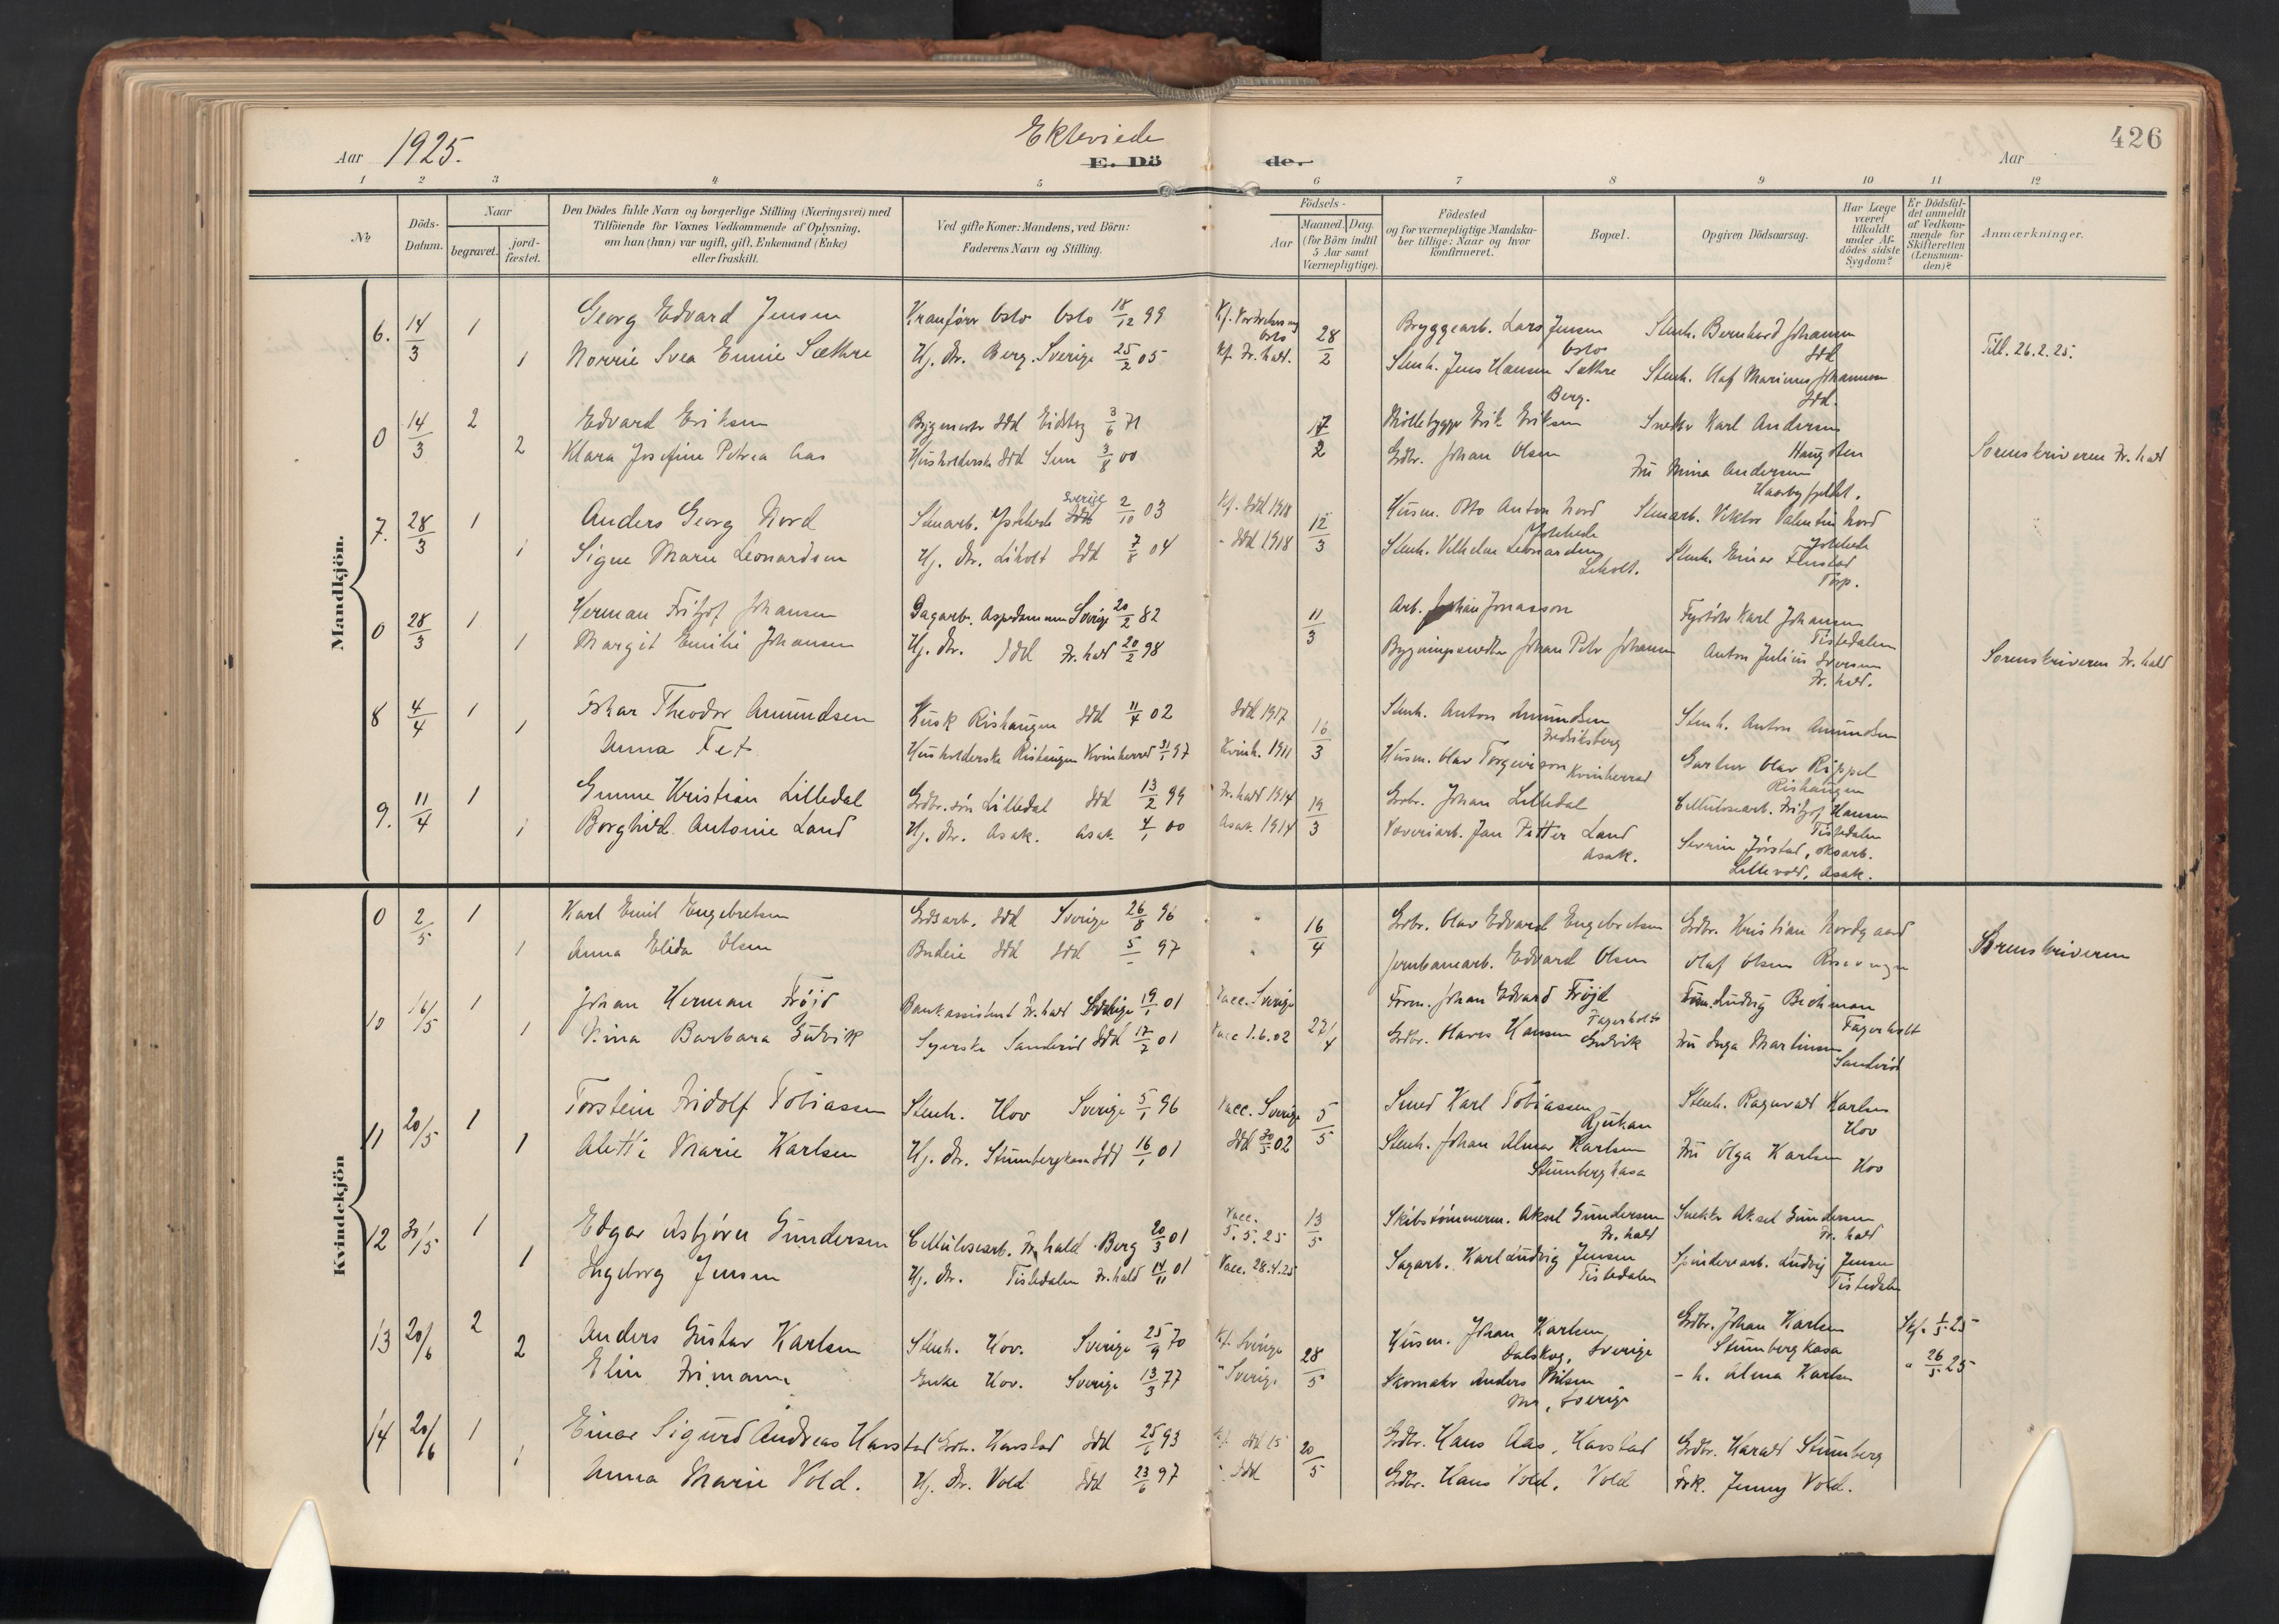 Aar 1925.
Ekteviede
E. Dö de.
Aar
426
1 2 3 4 5 6 7 8 9 10 11 12
No
Döds-Datum.
Naar
begravet.
jord-fæstet.
Den Dödes fulde Navn og borgerlige Stilling (Næringsvei) med
Tilföiende for Voxnes Vedkommende af Oplysning,
om han (hun) var ugift, gift, Enkemand (Enke)
eller fraskilt.
Ved gifte Koner: Mandens, ved Börn:
Faderens Navn og Stilling.
Födsels-
Aar
Maaned. Dag.
(for Börn indtil
5 Aar samt
Værnepligtige).
Födested
og for værnepligtige Mandska-
ber tillige: Naar og hvor
konfirmeret.
Bopæl.
Opgiven Dödsaarsag.
Har Læge
været
tilkaldt
under Af-
dödes sidste
Sygdom?
Er Dödsfal-
det anmeldt
af Vedkom-
mende for
Skifteretten
(Lensman-
den)?
Anmærkninger.
Mandkjön.
6. 14/3 1 Georg Edvard Jensen Kranförer Oslo Oslo 18/12 99 Oslo 28/2 Bryggearb. Lars Jensen Oslo Stenh. Bernhard Johansen Idd
1 Norrie Svea Ennie Sæthre Hj. dr. Berg. Sverige 25/2 05 Kf. Fr.hald. Stenh. Jens Hansen Sæthre Berg. Stenh. Olaf Marinus Johannesen Idd. Till. 26.2.25.
0 14/3 2 Edvard Eriksen Bygmester Idd Eidsberg 3/6 71 17/2 Möllebygger Erik Eriksen Snedker Karl Andersen Haugsten
2 Klara Josefine Petrea Aas Husholderske Idd 3/8 00 Grdbr. Johan Olsen Fru Mina Andersen Sorenskriveren Fr.hald
7. 28/3 1 Anders Georg Nord Stenarb. Sverige 2/10 03 Kf. Idd 1918 12/3 Husm. Otto Anton Nord Stenarb. Viktor Valentin Nord
1 Signe Marie Leonardsen Hj. dr. Liholt Idd 7/8 04 - Idd 1918 Stenh. Vilhelm Leonardsen Liholt. Stenh. Einar Torp.
0 28/3 1 Herman Fritjof Johansen Dagarb. Aspedammen Sverige 20/2 82 11/3 Arb. Johan Jonasson Fyrböter Karl Johansen Tistedalen
1 Margit Emilie Johansen Hj. dr. Idd Fr.hald 20/2 98 Bygningssnedker Johan Petter Johansen Anton Julius Iversen Fr.hald. Sorenskriveren Fr.hald
8 4/4 1 Oskar Theodor Amundsen Kusk Rishaugen Idd 11/4 02 Idd 1917 16/3 Stenh. Anton Amundsen Fredriksberg Stenh. Anton Amundsen
1 Anna Fet Husholderske Rishaugen Kvinherred 31/1 97 Kvinh. 1911 Husm. Olav Torgeirson Kvinherred Gartner Olav Rippel Rishaugen
9. 11/4 1 Gunne Kristian Lilledal Grdbr. sön Lilledal Idd 13/2 99 Fr.hald 1914 19/3 Grdbr. Johan Lilledal Cellulosearb. Fritjof Hansen Tistedalen
1 Borghild Antonie Land Hj. dr. Asak. Asak. 4/1 00 Asak. 1914 Væveriarb. Jan Petter Land Asak. Severin Jörstad, Lillevold, Asak.
Kvindekjön
0 2/5 1 Karl Emil Engebretsen Grdsarb. Idd Sverige 26/8 96 " 16/4 Grdbr. Olav Edvard Engebretsen Grdbr. Kristian Nordgaard
1 Anna Elida Olsen Budeie Idd Idd 97 " Jernbanearb. Edvard Olsen Olaf Olsen Sorenskriveren
10 16/5 1 Johan Herman Fröjd Bankassistent Fr.hald Sverige 19/1 01 Vacc. Sverige 27/4 Form. Johan Edvard Fröjd Fagerholt Ludvig Bichman Fagerholt
1 Vina Barbara Gudvik Syerske Sanderöd Idd 17/7 01 Vacc 1.6.02 Grdbr. Hans Hansen Gudvik Fru Inga Martinsen Sanderöd
11 20/5 1 Torstein Fridolf Tobiassen Stenh. Hov Sverige 5/1 96 Vacc. Sverige 5/5 Smed Karl Tobiassen Rjukan Stenh. Ragnvald Karlsen Hov
1 Alette Marie Karlsen Hj. dr. Stumbergkasa Idd 16/1 01 Idd 30/5 02 Stenh. Johan Almar Karlsen Stumbergkasa Fru Olga Karlsen Hov
12 30/5 1 Edgar Asbjörn Gundersen Cellulosearb. Fr.hald. Berg 20/3 01 Vacc. 5.5.25 13/5 Skibstömmerm. Aksel Gundersen Fr.hald Snekker Aksel Gundersen Fr.hald
1 Ingeborg Jensen Hj. dr. Tistedalen Fr.hald 14/11 01 Vacc. 28.4.25 Sagarb. Karl Ludvig Jensen Tistedalen Spinderearb. Ludvig Jensen Tistedalen
13 20/6 2 Anders Gustav Karlsen Stenh. Hov. Sverige 25/9 70 Kf. Sverige 28/5 Husm. Johan Karlsen Dalskog, Sverige Grdbr. Johan Karlsen Stumbergkasa Skf. 1/5 25
2 Elin Frimann Enke Hov. Sverige 13/3 77 " Sverige Skomaker Anders Nilsen Sverige - h. Alma Karlsen " 26/5 25
14 20/6 1 Einar Sigurd Andreas Harstad Grdbr. Harstad Idd 25/1 93 Kf. Idd 20/5 Grdbr. Hans Aas, Harstad Grdbr. Harald Stumberg
1 Anna Marie Vold. Hj. dr. Vold Idd 23/6 97 " Idd Grdbr. Hans Vold, Vold Frk. Jenny Vold.